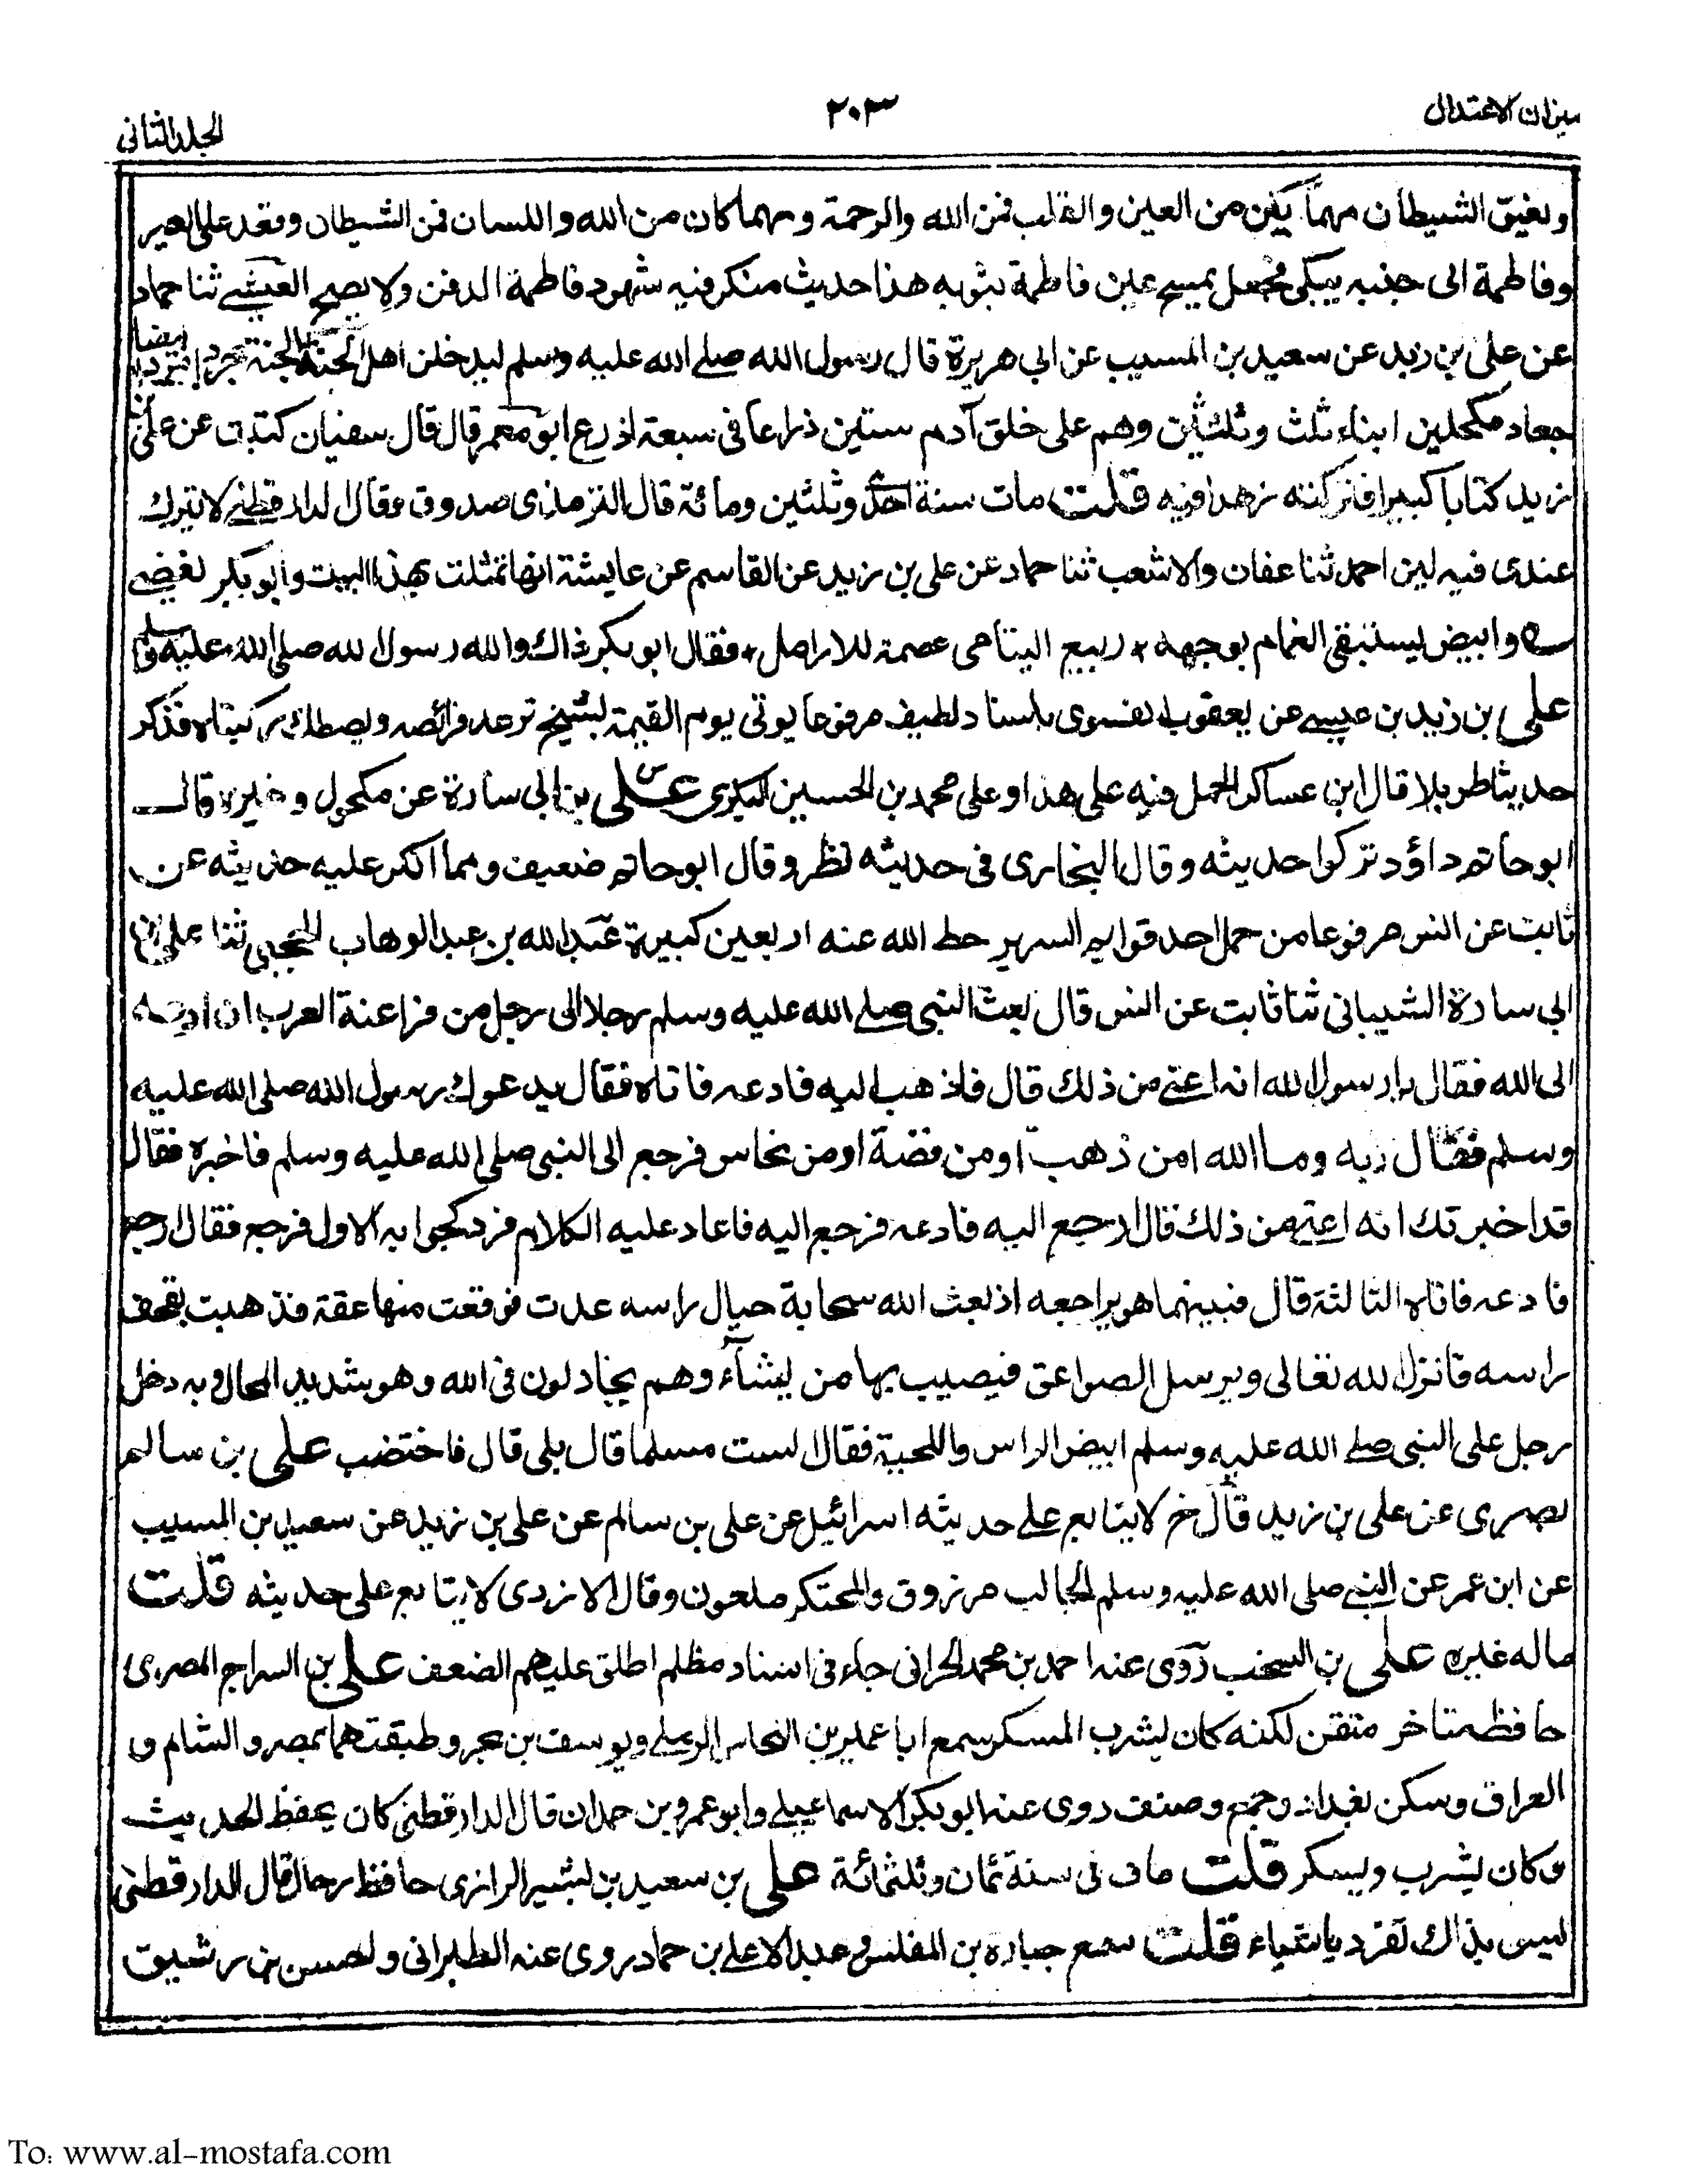 ميزان الاعتدال
٢٠٣
الجلد الثانى
ونعيق الشيطان مهما يكن من العين والقلب فمن الله والرحمة ومهما كان من الله واللسان فمن الشيطان وقعد على القبر
وفاطمة الى جنبه يبكى فجعل يمسح عين فاطمة بثوبه هذا حديث منكر فيه شهود فاطمة الدفن ولا يصح العيشى ثنا حماد
عن على بن زيد عن سعيد بن المسيب عن ابى هريرة قال رسول الله صلى الله عليه وسلم ليدخلن اهل الجنة الجنة جردا مردا بيضا
جعاد مكحلين ابناء ثلث وثلثين وهم على خلق آدم ستين ذراعا فى سبعة اذرع ابو معمر قال قال سفيان كتبت عن على بن
زيد كتابا كبيرا فتركته زهدا فيه قلت مات سنة احدى وثلثين ومائة قال الترمذى صدوق وقال الدارقطنى لا يترك
عندى فيه لين احمد ثنا عفان والاشعب ثنا حماد عن على بن زيد عن القاسم عن عايشة انها تمثلت بهذا البيت وابو بكر يقضى
وابيض يستسقى الغمام بوجهه * ربيع اليتامى عصمة للارامل * فقال ابو بكر ذاك والله رسول الله صلى الله عليه وسلم
على بن زيد بن عيسى عن يعقوب الفسوى باسناد لطيف مرفوعا يوتى يوم القيمة بشيخ ترعد فرائصه ويصطك ركبتاه فذكر
حديثا طويلا قال ابن عساكر الحمل فيه على هذا او على محمد بن الحسين البكرى على س بن ابى سارة عن مكحول وغيره قال
ابو حاتم داؤد تركوا حديثه وقال البخارى فى حديثه نظر وقال ابو حاتم ضعيف ومما انكر عليه حديثه عن
ثابت عن انس مرفوعا من حمل احد قوايم السرير حط الله عنه اربعين كبيرة عبد الله بن عبد الوهاب الحجبى ثنا على بن
ابى سارة الشيبانى ثنا ثابت عن انس قال بعث النبى صلى الله عليه وسلم رجلا الى رجل من فراعنة العرب ان ادعه
الى الله فقال يا رسول الله انه اعتى من ذلك قال فاذهب اليه فادعه فاتاه فقال يدعوك رسول الله صلى الله عليه
وسلم فقال ربه وما الله امن ذهب او من فضة او من نحاس فرجع الى النبى صلى الله عليه وسلم فاخبره فقال
قد اخبرتك انه اعتى من ذلك قال ارجع اليه فادعه فرجع اليه فاعاد عليه الكلام فرد كجوابه الاول فرجع فقال ارجع
فادعه فاتاه الثالثة قال فبينما هو يراجعه اذ بعث الله سحابة حيال راسه عدت فوقعت منها عقة فذهبت بقحف
راسه فانزل الله تعالى ويرسل الصواعق فيصيب بها من يشآء وهم يجادلون فى الله وهو شديد المحال وبه دخل
رجل على النبى صلى الله عليه وسلم ابيض الراس واللحية فقال الست مسلما قال بلى قال فاختضب على بن سالم
بصرى عن على بن زيد قال خ لا يتابع على حديثه اسرائيل عن على بن سالم عن على بن زيد عن سعيد بن المسيب
عن ابن عمر عن النبى صلى الله عليه وسلم الجالب مرزوق والمحتكر ملعون وقال الازدى لا يتابع على حديثه قلت
ما له غيره على بن السخب روى عنه احمد بن محمد الحرانى جاء فى اسناد مظلم اطلق عليهم الضعف على بن السراج المصرى
حافظ متاخر متقن لكنه كان يشرب المسكر سمع ابا عمير بن النحاس الرملى ويوسف بن بحر وطبقتهما بمصر والشام و
العراق وسكن بغداد وجمع وصنف روى عنه ابو بكر الاسماعيلى وابو عمرو بن حمدان قال الدارقطنى كان يحفظ الحديث
وكان يشرب ويسكر قلت مات فى سنة ثمان وثلثمائة على بن سعيد بن بشير الرازى حافظ رحال قال الدارقطنى
ليس بذاك تفرد باشياء قلت سمع جباره بن المفلس وعبد الاعلى بن حماد روى عنه الطبرانى والحسن بن رشيق
To: www.al-mostafa.com